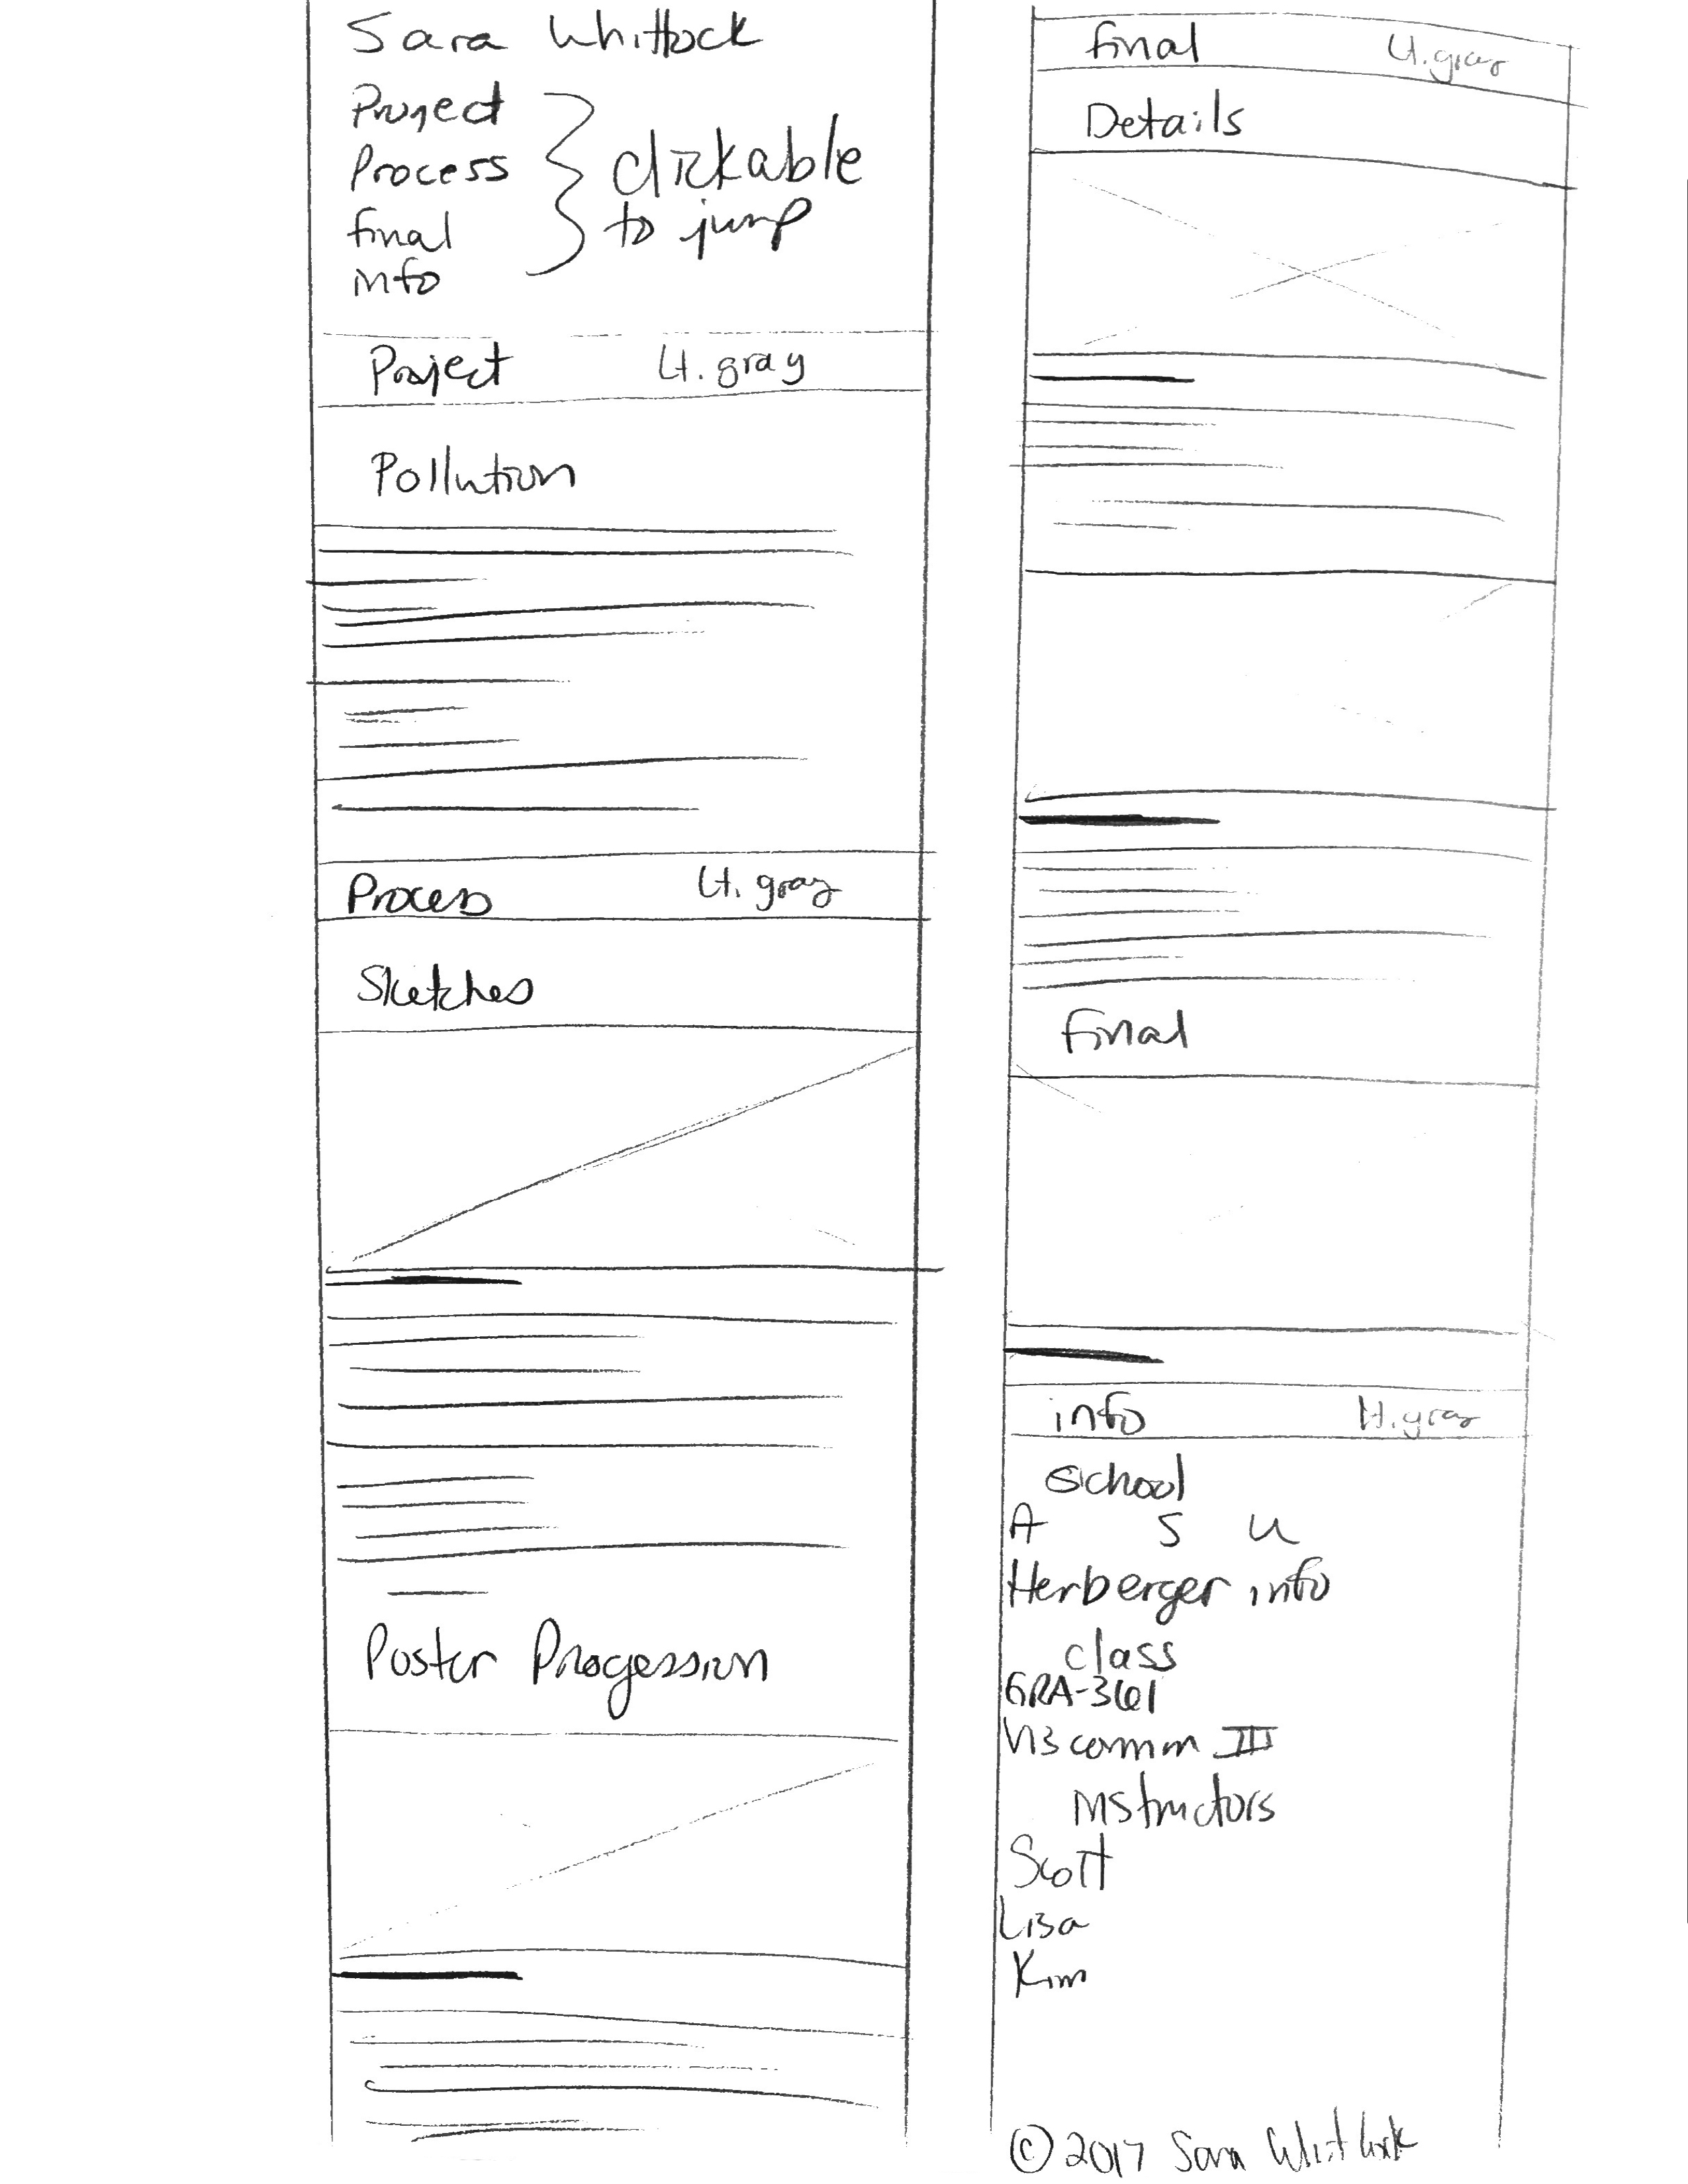 Sara Whitlock
Project
Process
final
info
clickable
to jump
Project Lt. gray
Pollution
Process Lt. gray
Sketches
Poster Progession
final Lt. gray
Details
final
info Lt. gray
School
A S U
Herberger info
class
GRA-361
Vis comm III
instructors
Scott
Lisa
Kim
© 2017 Sara Whitlock